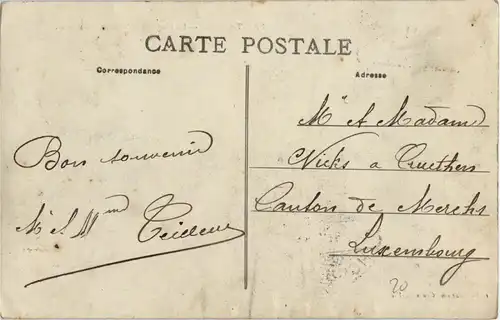 CARTE POSTALE
Correspondance
Adresse
Bon souvenir
M et Mme
Mr et Madame
Nicks a
Canton de Mersch
Luxembourg
20